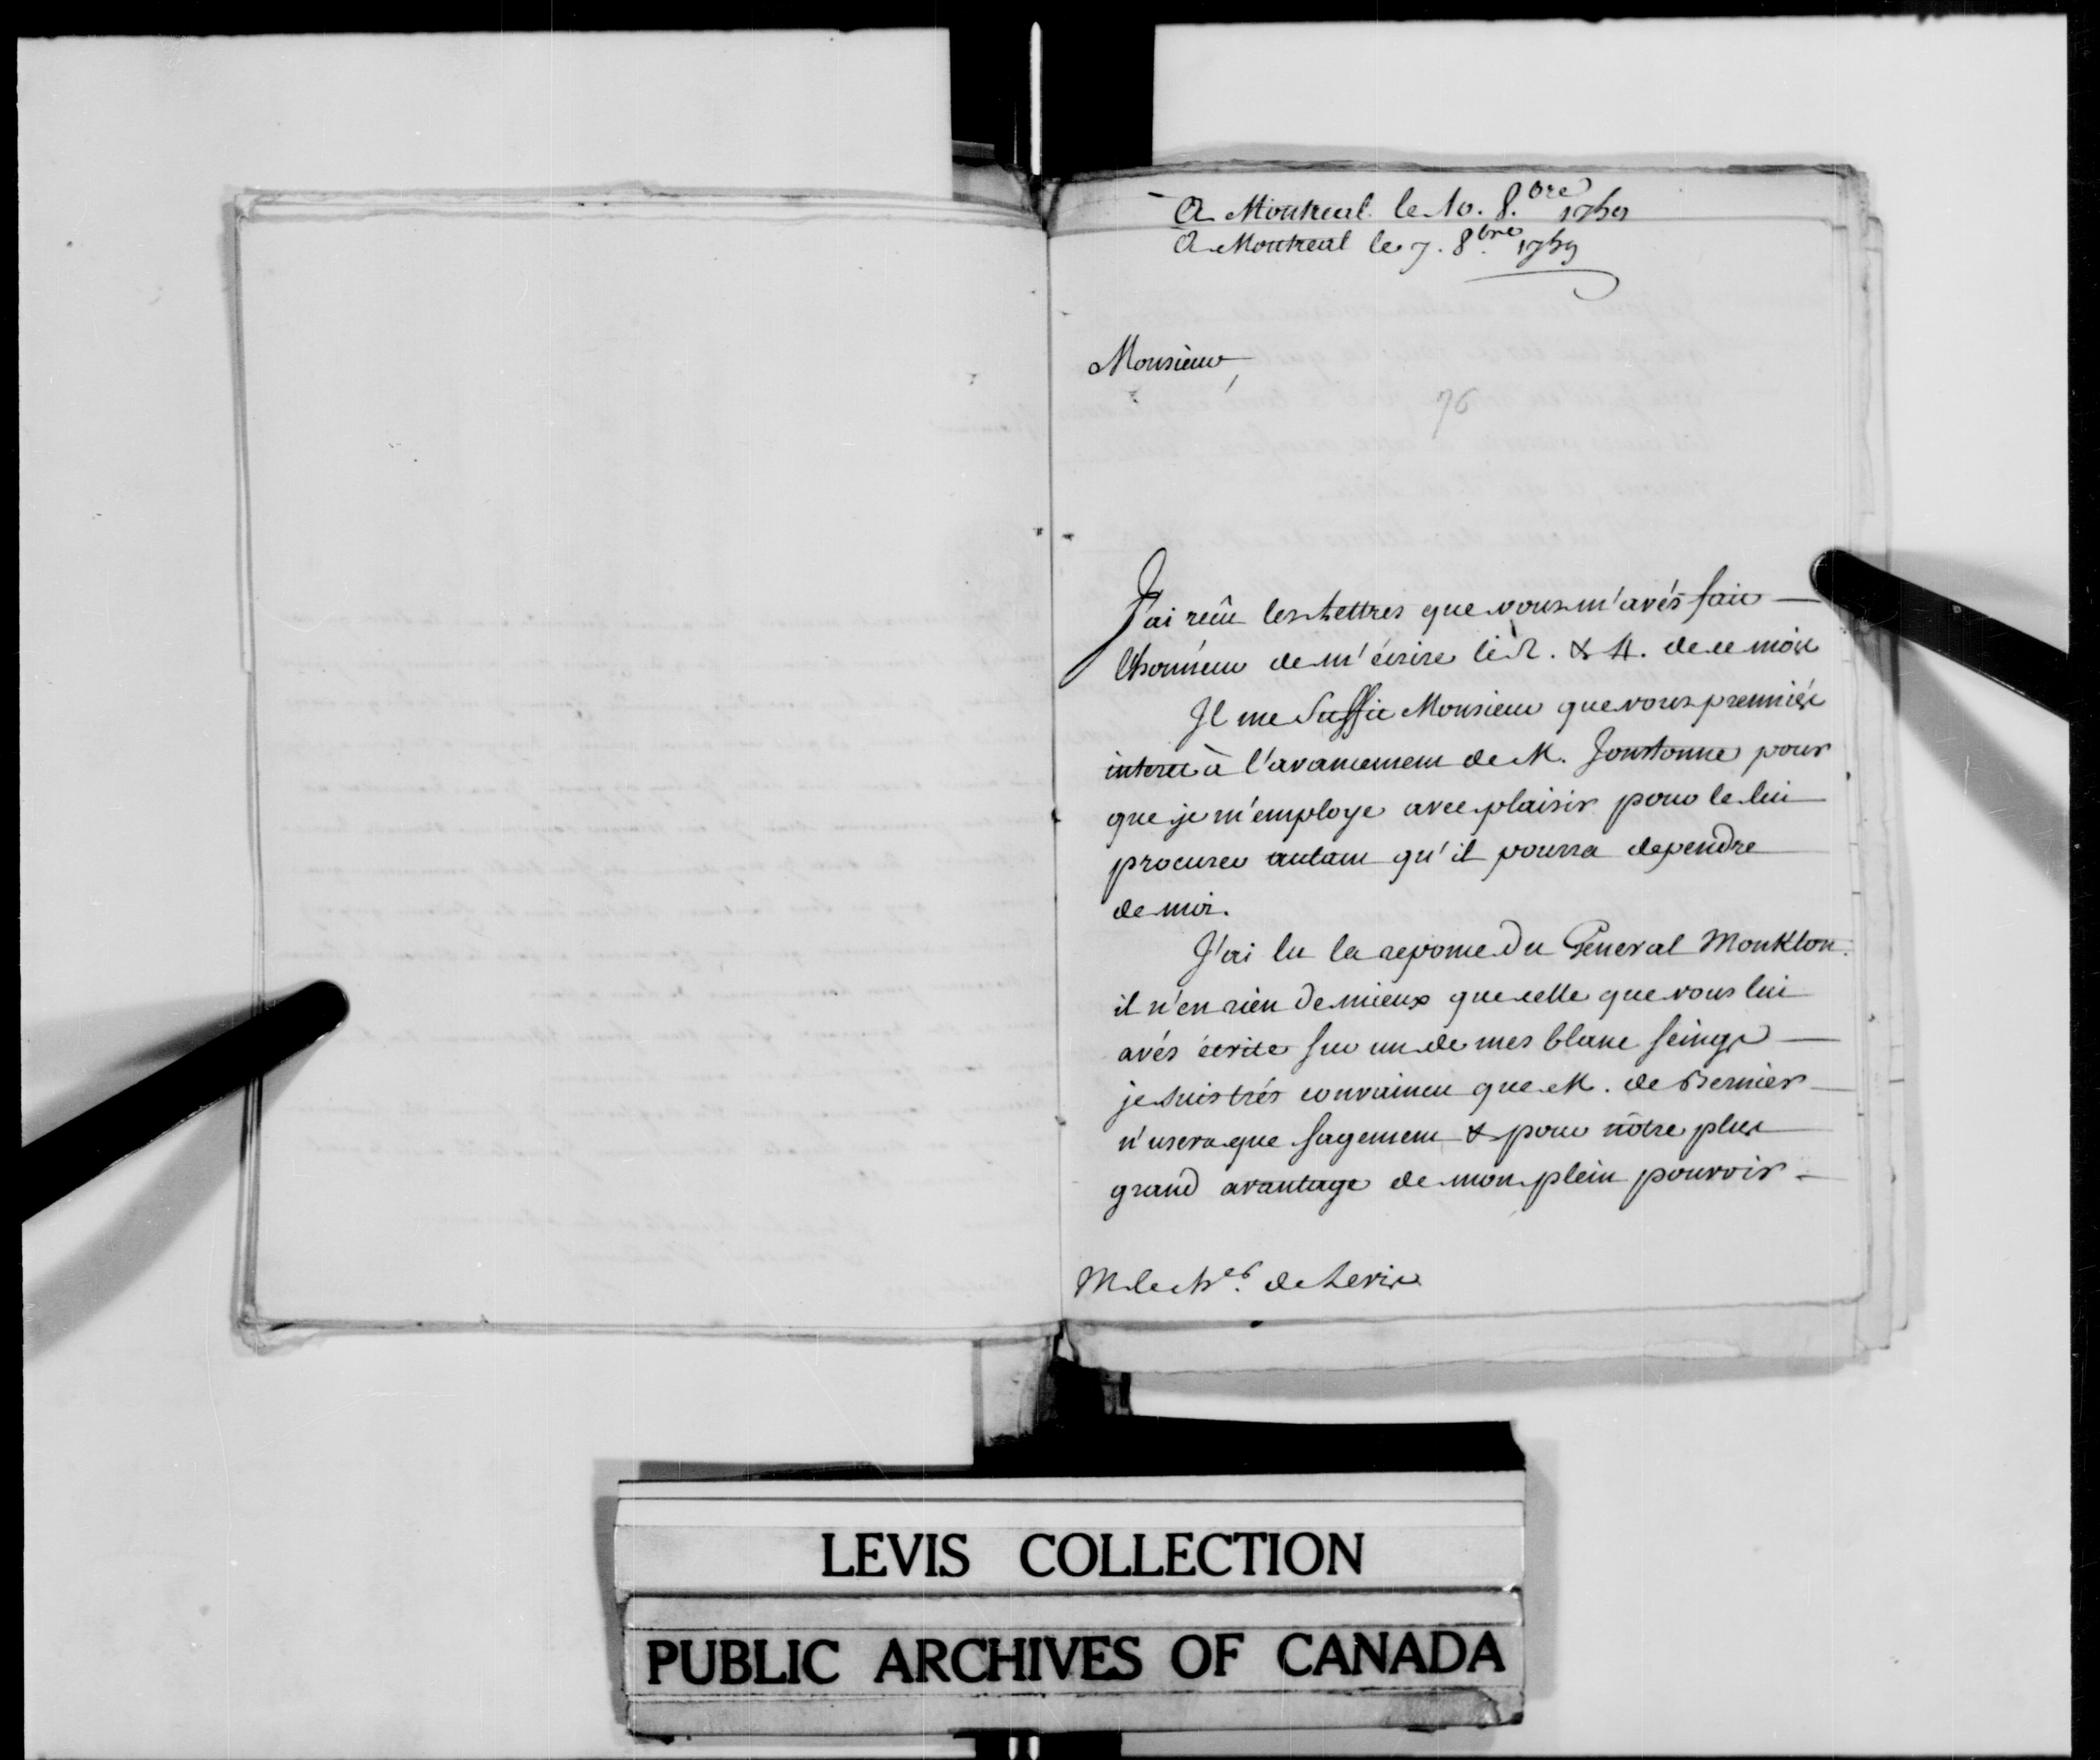 A Montreal le 10. 8.bre 1759
A Montreal le 7. 8bre. 1759
Monsieur,
76
J'ai reçu les Lettres que vous m'avés fait
l'honneur de m'écrire le 2. & 4. de ce mois
Il me Suffit Monsieur que vous prenniés
interet à l'avancement de M. Jonstonne pour
que je m'employe avec plaisir pour le lui
procurer autant qu'il pourra dependre
de moi.
J'ai lu la reponse du General Monkton.
il n'est rien de mieux que celle que vous lui
avés écrite sur un de mes blanc seings
je suis trés convaincu que M. de Bernier
n'usera que sagement & pour nôtre plus
grand avantage de mon plein pouvoir.
M. le Ch.er de Levis
LEVIS COLLECTION
PUBLIC ARCHIVES OF CANADA